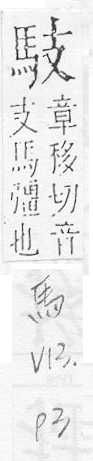 馶
章移切音
支馬彊也
馬
V13.
P3